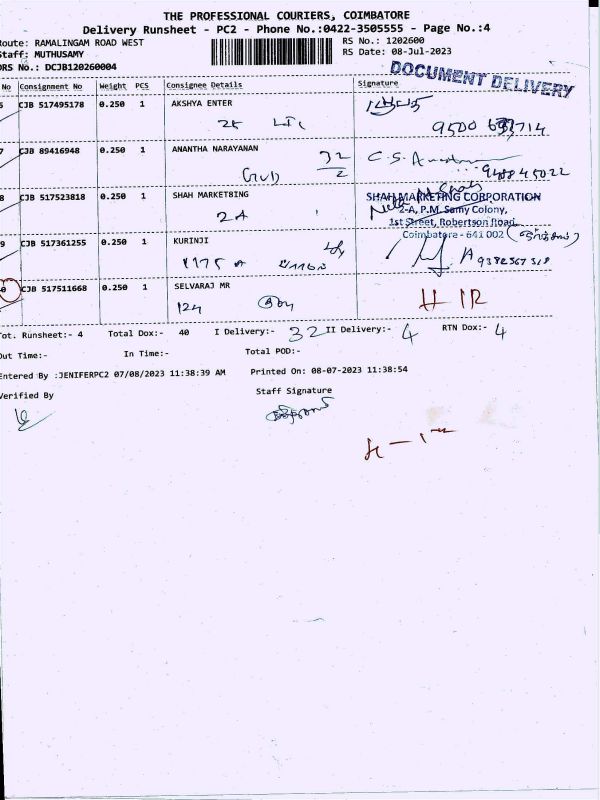 THE PROFESSIONAL COURIERS, COIMBATORE
Delivery Runsheet - PC2 - Phone No.:0422-3505555 - Page No.:4
Route: RAMALINGAM ROAD WEST
RS No.: 1202600
Staff: MUTHUSAMY
RS Date: 08-Jul-2023
DRS No.: DCJB120260004
DOCUMENT DELIVERY
No Consignment No Weight PCS Consignee Details Signature
CJB 517495178 0.250 1 AKSHYA ENTER
25
7 CJB 89416948 0.250 1 ANANTHA NARAYANAN
32/2
8 CJB 517523818 0.250 1 SHAH MARKETBING
2A
SHAH MARKETING CORPORATION
2-A, P.M. Samy Colony,
1st Street, Robertson Road,
Coimbatore - 641 002
9 CJB 517361255 0.250 1 KURINJI
1175 A
9382567318
0 CJB 517511668 0.250 1 SELVARAJ MR
124
Tot. Runsheet:- 4 Total Dox:- 40 I Delivery:- 32 II Delivery:- 4 RTN Dox:- 4
Out Time:- In Time:- Total POD:-
Entered By :JENIFERPC2 07/08/2023 11:38:39 AM Printed On: 08-07-2023 11:38:54
Verified By Staff Signature